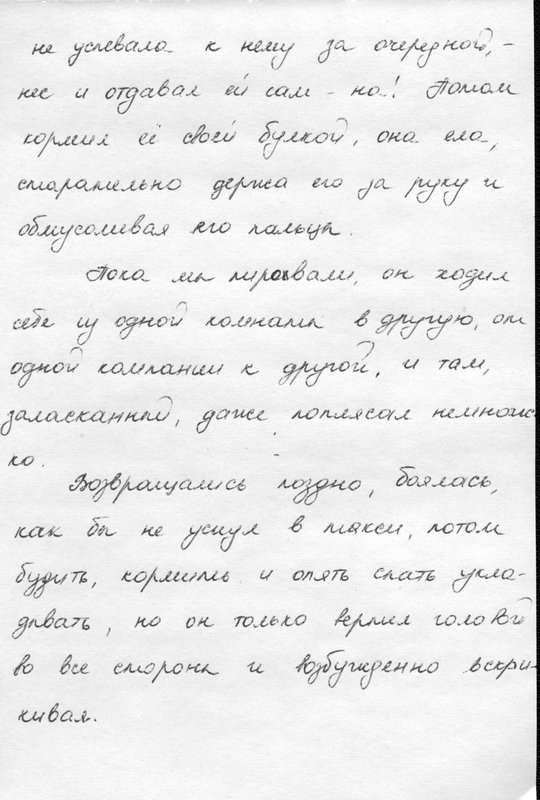 не успевала к нему за очередной, -
нес и отдавал ей сам - на! Потом
кормил её своей булкой, она ела,
старательно держа его за руку и
обмусоливая его пальцы.
Пока мы пировали, он ходил
себе из одной комнаты в другую, от
одной компании к другой, и там,
заласканный, даже поплясал немнож-
ко.
Возвращались поздно, боялась,
как бы не уснул в такси, потом
будить, кормить и опять спать укла-
дывать, но он только вертел головой
во все стороны и возбужденно вскри-
кивал.